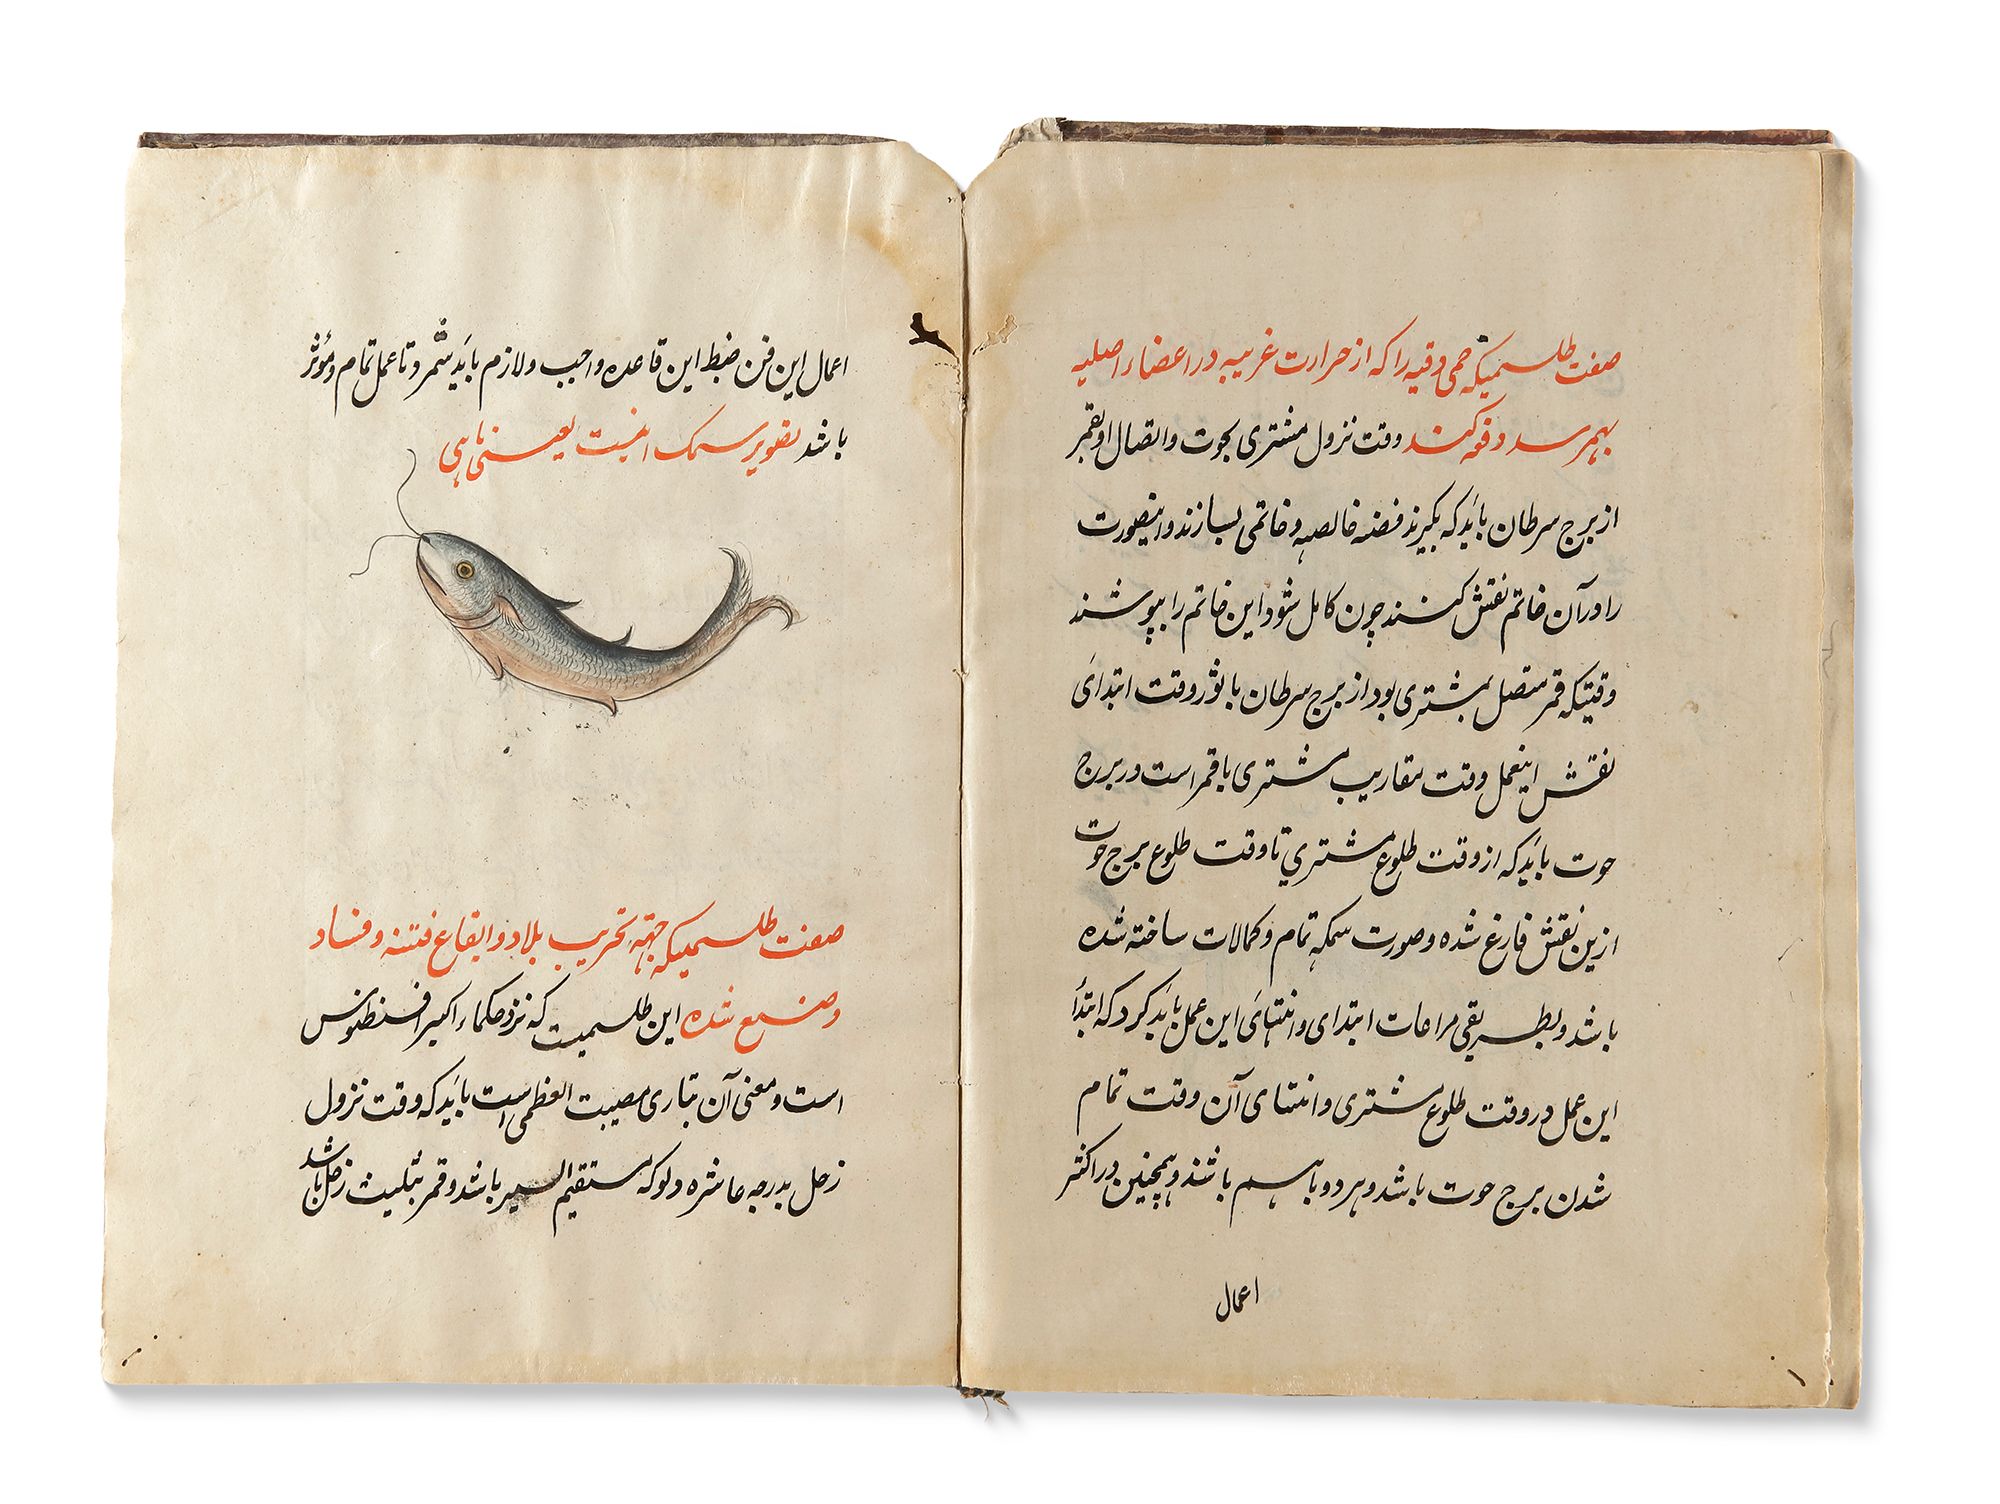 صفت طلسمیکه حمی دقیه را که از حرارت غریبه در اعضاء اصلیه
بهمرسد دفع کند وقت نزول مشتری بحوت و اتصال او بقمر
از برج سرطان باید که بگیرند فضه خالصه و خاتمی بسازند و اینصورت
را در آن خاتم نقش کنند چون کامل شود این خاتم را بپوشند
وقتیکه قمر متصل بمشتری بود از برج سرطان یا ثور وقت ابتدای
نقش اینعمل وقت مقاریب مشتری با قمر است در برج
حوت باید که از وقت طلوع مشتری تا وقت طلوع برج حوت
ازین نقش فارغ شده و صورت سمکه تمام و کمالات ساخته شده
باشد و بطریقی مراعات ابتدای و انتهای این عمل باید کرد که ابتدأ
این عمل در وقت طلوع مشتری و انتهای آن وقت تمام
شدن برج حوت باشد و هر دو با هم باشند و همچنین در اکثر
اعمال
اعمال این فن ضبط این قاعده واجب و لازم باید شمرد تا عمل تمام و مؤثر
باشد تصویر سمک اینست یعنی ماهی
صفت طلسمیکه جهة تخریب بلاد و ایقاع فتنه و فساد
وضع شده این طلسمیت که نزد حکماء اکبر
است و معنی آن بتازی مصیبت العظمی است باید که وقت نزول
زحل بدرجه عاشره دلو که مستقیم السیر باشد و قمر بتثلیث زحل باشد